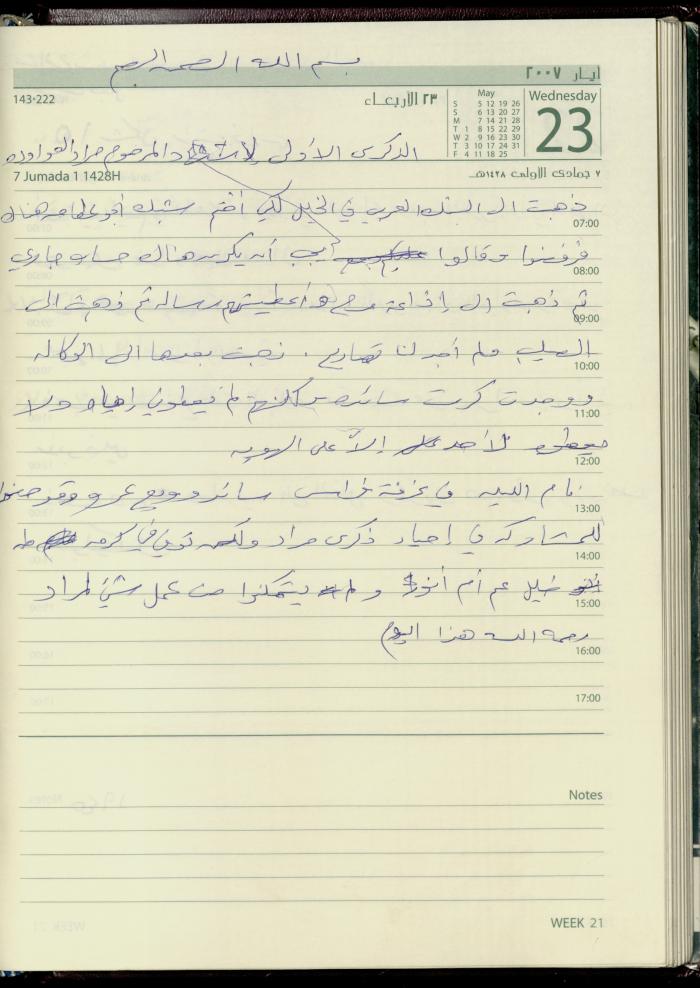 بسم الله الرحمن الرحيم
أيار ٢٠٠٧
143-222
٢٣ الأربعاء
May
S 5 12 19 26
S 6 13 20 27
M 7 14 21 28
T 1 8 15 22 29
W 2 9 16 23 30
T 3 10 17 24 31
F 4 11 18 25
Wednesday
23
الذكرى الأولى لاستشهاد المرحوم مراد
7 Jumada 1 1428H
٧ جمادى الأولى ١٤٢٨هـ
ذهبت الى البنك العربي في الخليل لكي أفتح هناك
07:00
فرفضوا وقالوا يجب أن يكون هناك حساب جاري
08:00
ثم ذهبت الى إذاعة وأعطيتهم رساله ثم ذهبت الى
09:00
الصليب ولم أجد لنا تصاريح . ذهبت بعدها الى الوكاله
10:00
ووجدت كرت سائد لكنهم لم يعطوني إياه ولا
11:00
لأحد إلا على الهويه
12:00
نام الليله في غرفة فراس سائد
13:00
للمشاركه في إحياء ذكرى مراد ولكن توفي في
14:00
خليل عم أم أنور ولم يتمكنوا من عمل شيئ لمراد
15:00
رحمه الله هذا اليوم
16:00
17:00
Notes
WEEK 21